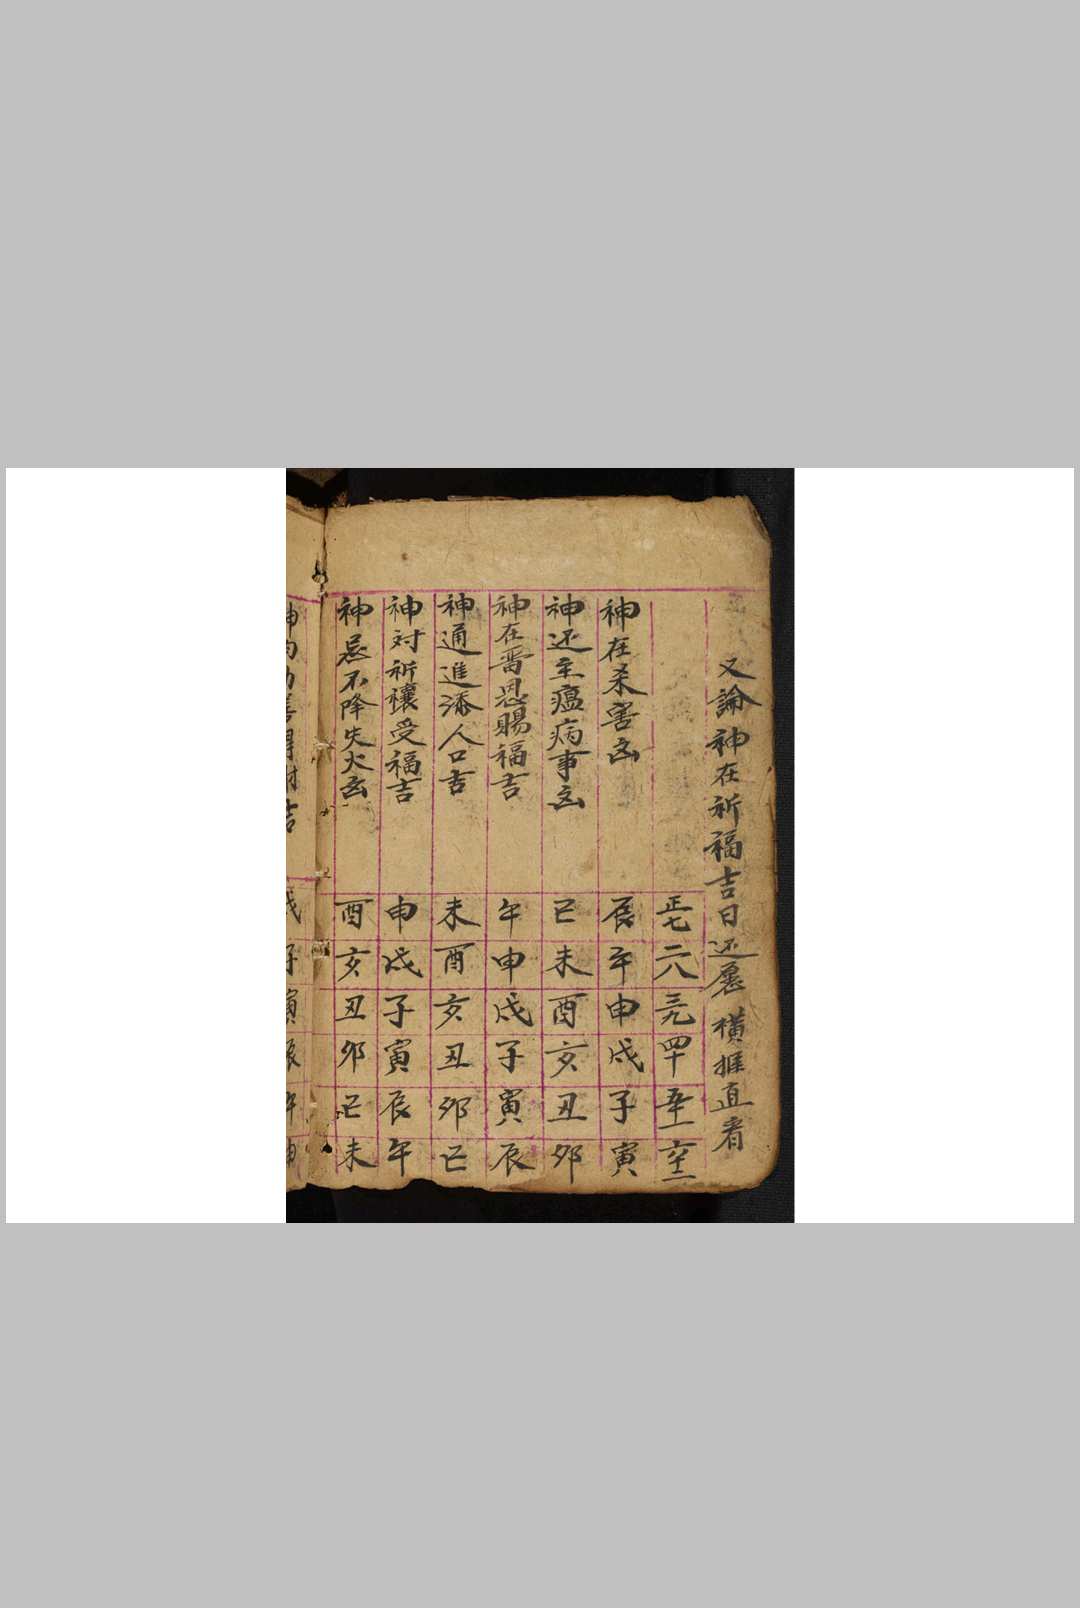 又論神在祈福吉日还愿橫推直看
正七二八三九四十五十一六十二
神在杀害凶辰午申戌子寅
神还主瘟病事凶巳未酉亥丑卯
神在善恩賜福吉午申戌子寅辰
神通進添人口吉未酉亥丑卯巳
神对祈禳受福吉申戌子寅辰午
神忌不降失火凶酉亥丑卯巳未
吉戌子寅辰午申